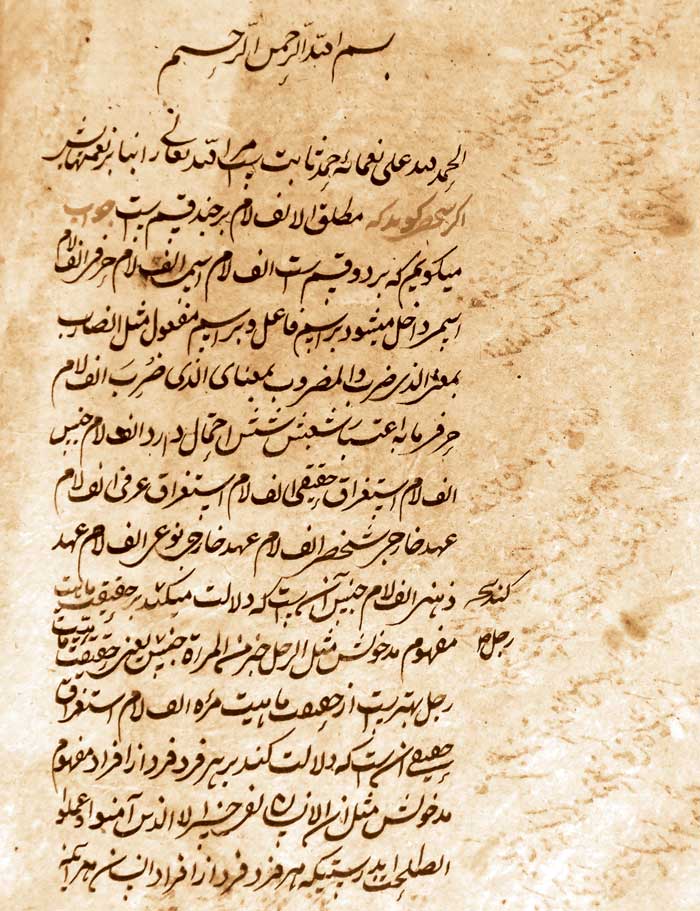 بسم الله الرحمن الرحيم
الحمد لله على نعمائه احمد ثابت است مر الله تعالى را بنا بر نعمتهایش
اگر شخصی گوید که مطلق الف لام بر چند قسم است جواب
میگویم که بر دو قسم است الف لام اسمی الف لام حرفی الف لام
اسمی داخل میشود بر اسم فاعل و بر اسم مفعول مثل الضارب
بمعنی الذی ضرب والمضروب بمعنای الذی ضُرِبَ الف لام
حرفی احتمال دارد الف لام جنس
الف لام استغراق حقیقی الف لام استغراق عرفی الف لام
عهد خارجی شخصی الف لام عهد خارجی نوعی الف لام عهد
ذهنی الف لام جنس آن است که دلالت میکند بر حقیقت ماهیت
کند بر
مفهوم مدخولش مثل الرجل خیر من المراة جنس یعنی حقیقت ماهیت
رجل
رجل بهتر است از حقیقت ماهیت مرءه الف لام استغراق
حقیقی آن است که دلالت کند بر هر فرد فرد از افراد مفهوم
مدخولش مثل ان الانسان لفی خسر الا الذین آمنوا و عملوا
الصلحت بدرستیکه هر فرد فرد از افراد انسان هر آینه